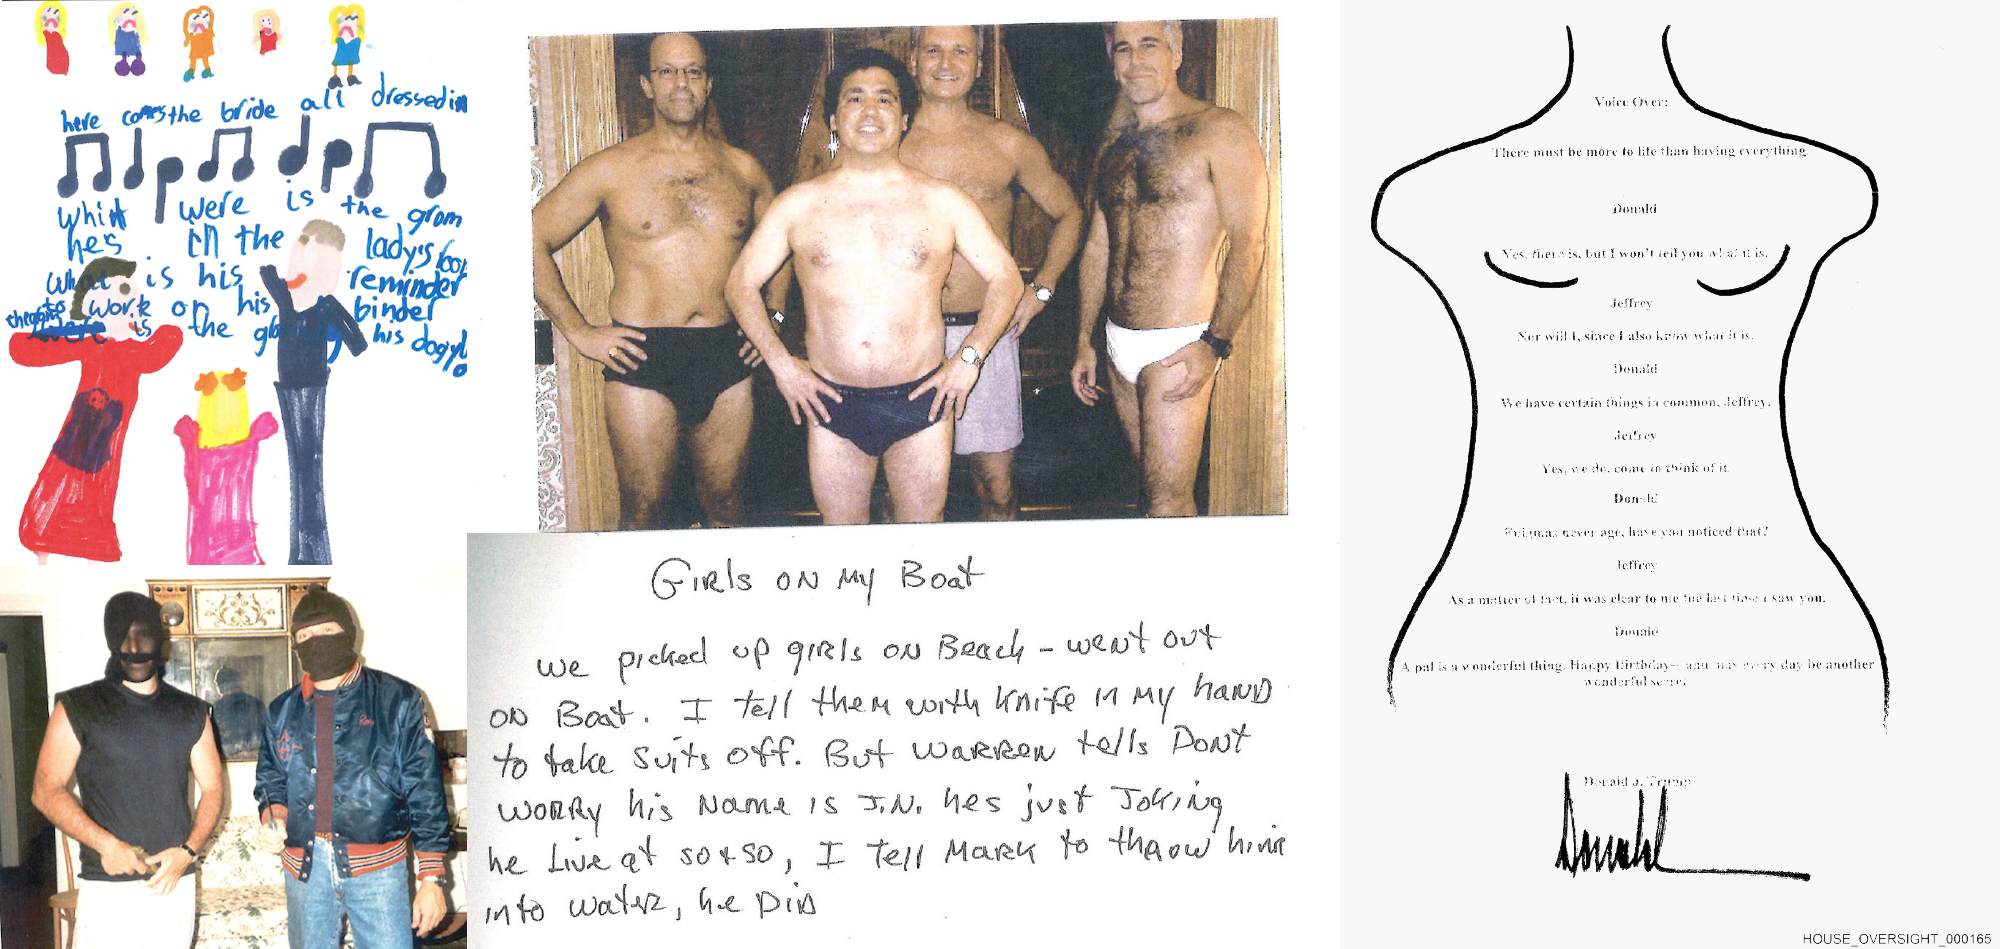 here comes the bride all dressed in
whit were is the grom
hes in the lady's loo
what is his reminder
to work on his binder
is the his
Girls on my Boat
We picked up girls on Beach - went out
on Boat. I tell them with knife in my hand
to take suits off. But Warren tells Dont
worry his name is J.N. hes just Joking
he Live at so + so, I tell Mark to thaow him
into water, he Did
Voice Over:
There must be more to life than having everything.
Donald
Yes, there is, but I won't tell you what it is.
Jeffrey
Nor will I, since I also know what it is.
Donald
We have certain things in common, Jeffrey.
Jeffrey
Yes, we do, come to think of it.
Donald
Enigmas never age, have you noticed that?
Jeffrey
As a matter of fact, it was clear to me the last time I saw you.
Donald
A pal is a wonderful thing. Happy Birthday — and may every day be another
wonderful secret.
Donald J. Trump
Donald
HOUSE_OVERSIGHT_000165